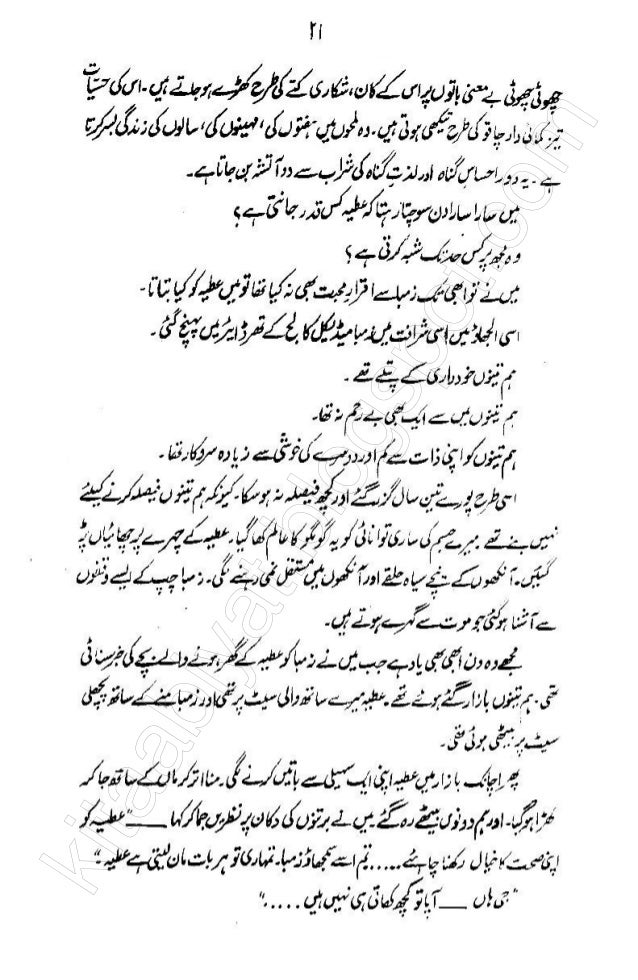 ۲۱
چھوٹی چھوٹی بے معنی باتوں پر اس کے کان، شکاری کتے کی طرح کھڑے ہو جاتے ہیں۔ اس کی حسیات
تیز کمانی دار چاقو کی طرح تیکھی ہوتی ہیں۔ وہ لمحوں میں ہفتوں کی، مہینوں کی، سالوں کی زندگی بسر کرتا
ہے۔ یہ دور احساسِ گناہ اور لذتِ گناہ کی شراب سے دو آتشہ بن جاتا ہے۔
میں سارا سارا دن سوچتا رہتا کہ عطیہ کس قدر جانتی ہے؟
وہ مجھ پر کس حد تک شبہ کرتی ہے؟
میں نے تو ابھی تک زمبا سے اقرارِ محبت بھی نہ کیا تھا تو میں عطیہ کو کیا بتاتا۔
اسی الجھاؤ میں اسی شرافت میں زمبا میڈیکل کالج کے تھرڈ ایئر میں پہنچ گئی۔
ہم تینوں خودداری کے پتلے تھے۔
ہم تینوں میں سے ایک بھی بے رحم نہ تھا۔
ہم تینوں کو اپنی ذات سے کم اور دوسرے کی خوشی سے زیادہ سروکار تھا۔
اسی طرح پورے تین سال گزر گئے اور کچھ فیصلہ نہ ہو سکا۔ کیونکہ ہم تینوں فیصلہ کرنے کیلئے
نہیں بنے تھے۔ میرے جسم کی ساری توانائی کو یہ گومگو کا عالم کھا گیا۔ عطیہ کے چہرے پر چھائیاں پڑ
گئیں۔ آنکھوں کے نیچے سیاہ حلقے اور آنکھوں میں مستقل نمی رہنے لگی۔ زمبا چپ کے ایسے وقفوں
سے آشنا ہو گئی جو موت سے گہرے ہوتے ہیں۔
مجھے وہ دن ابھی بھی یاد ہے جب میں نے زمبا کو عطیہ کے گھر ہونے والے بچے کی خبر سنائی
تھی۔ ہم تینوں بازار گئے ہوئے تھے۔ عطیہ میرے ساتھ والی سیٹ پر تھی اور زمبا منے کے ساتھ پچھلی
سیٹ پر بیٹھی ہوئی تھی۔
پھر اچانک بازار میں عطیہ اپنی ایک سہیلی سے باتیں کرنے لگی۔ منا اتر کر ماں کے ساتھ جا کر
کھڑا ہو گیا۔ اور ہم دونوں بیٹھے رہ گئے۔ میں نے برتنوں کی دکان پر نظریں جما کر کہا ——"عطیہ کو
اپنی صحت کا خیال رکھنا چاہئے..... تم اسے سمجھاؤ زمبا۔ تمہاری تو ہر بات مان لیتی ہے عطیہ۔"
"جی ہاں —— آپا تو کچھ کھاتی ہی نہیں ہیں....."
kitaabiyat.blogspot.com